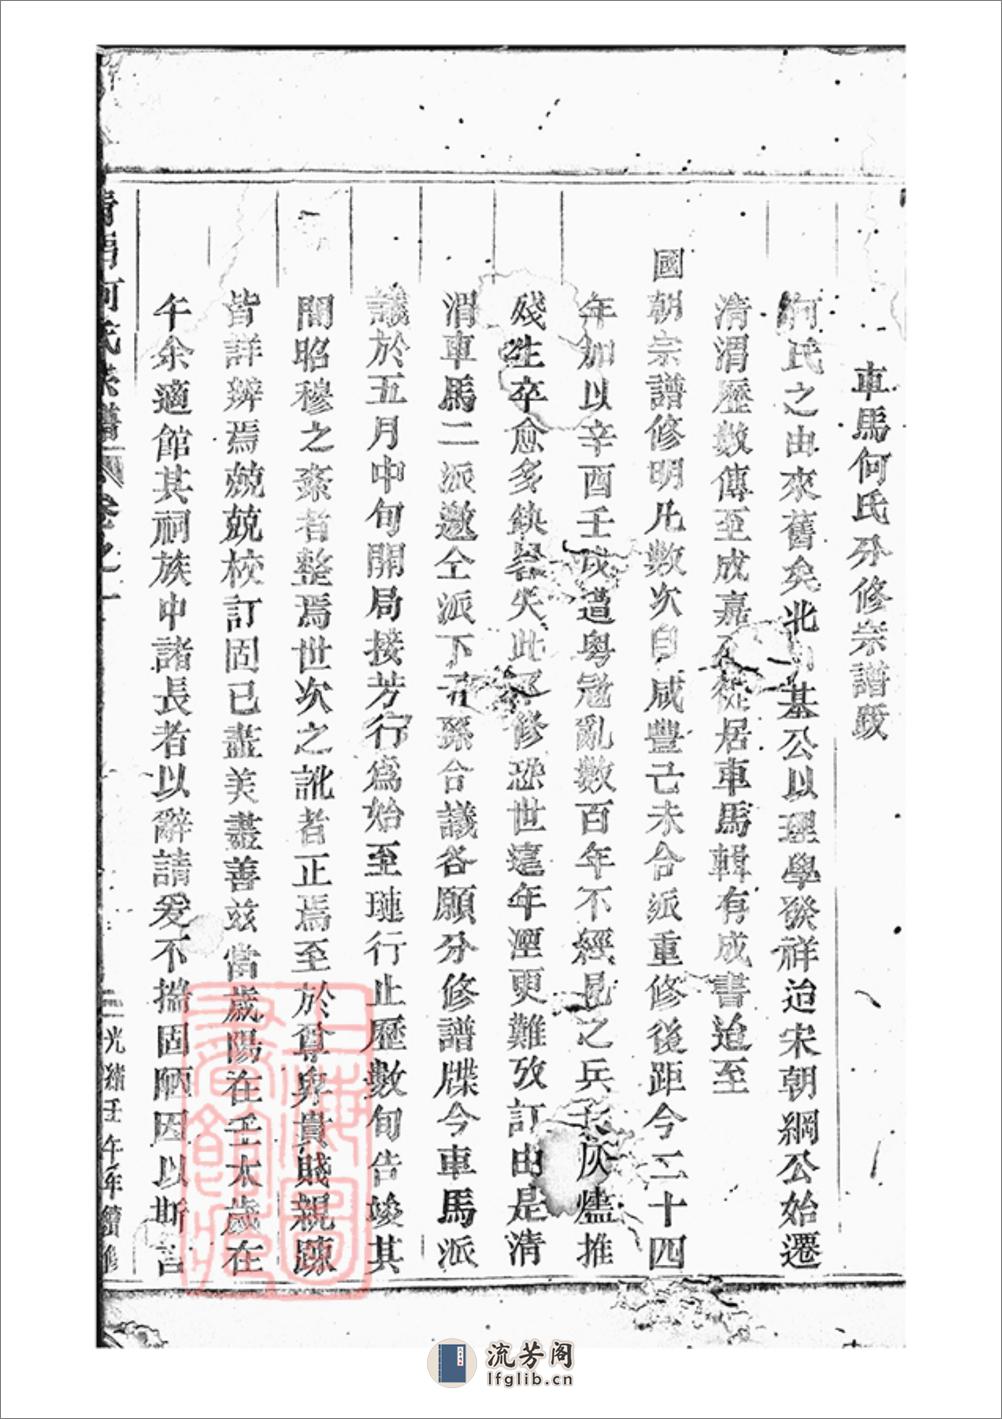 車馬何氏分修宗譜跋
何氏之由來舊矣北基公以理學發祥迨宋朝綱公始遷
清渭歷數傳至成嘉徙居車馬輯有成書迨至
國朝宗譜修明凡數次自咸豐己未合派重修後距今二十四
年加以辛酉壬戌遭粵冦亂數百年不經見之兵灰燼推
殘生卒愈多缺畧失此不修恐世遠年湮更難攷訂由是清
渭車馬二派邀仝派下子孫合議各願分修譜牒今車馬派
議於五月中旬開局接芳行爲始至璉行止歷數旬告竣其
間昭穆之紊者整焉世次之訛者正焉至於尊卑貴賤親疎
皆詳辨焉兢兢校訂固已盡美盡善兹當歲陽在壬太歲在
午余適館其祠族中諸長者以辭請爰不揣固陋因以斯言
清渭何氏宗譜 卷之一 光緒壬午年續修
上海圖書館藏
流芳阁
lfglib.cn